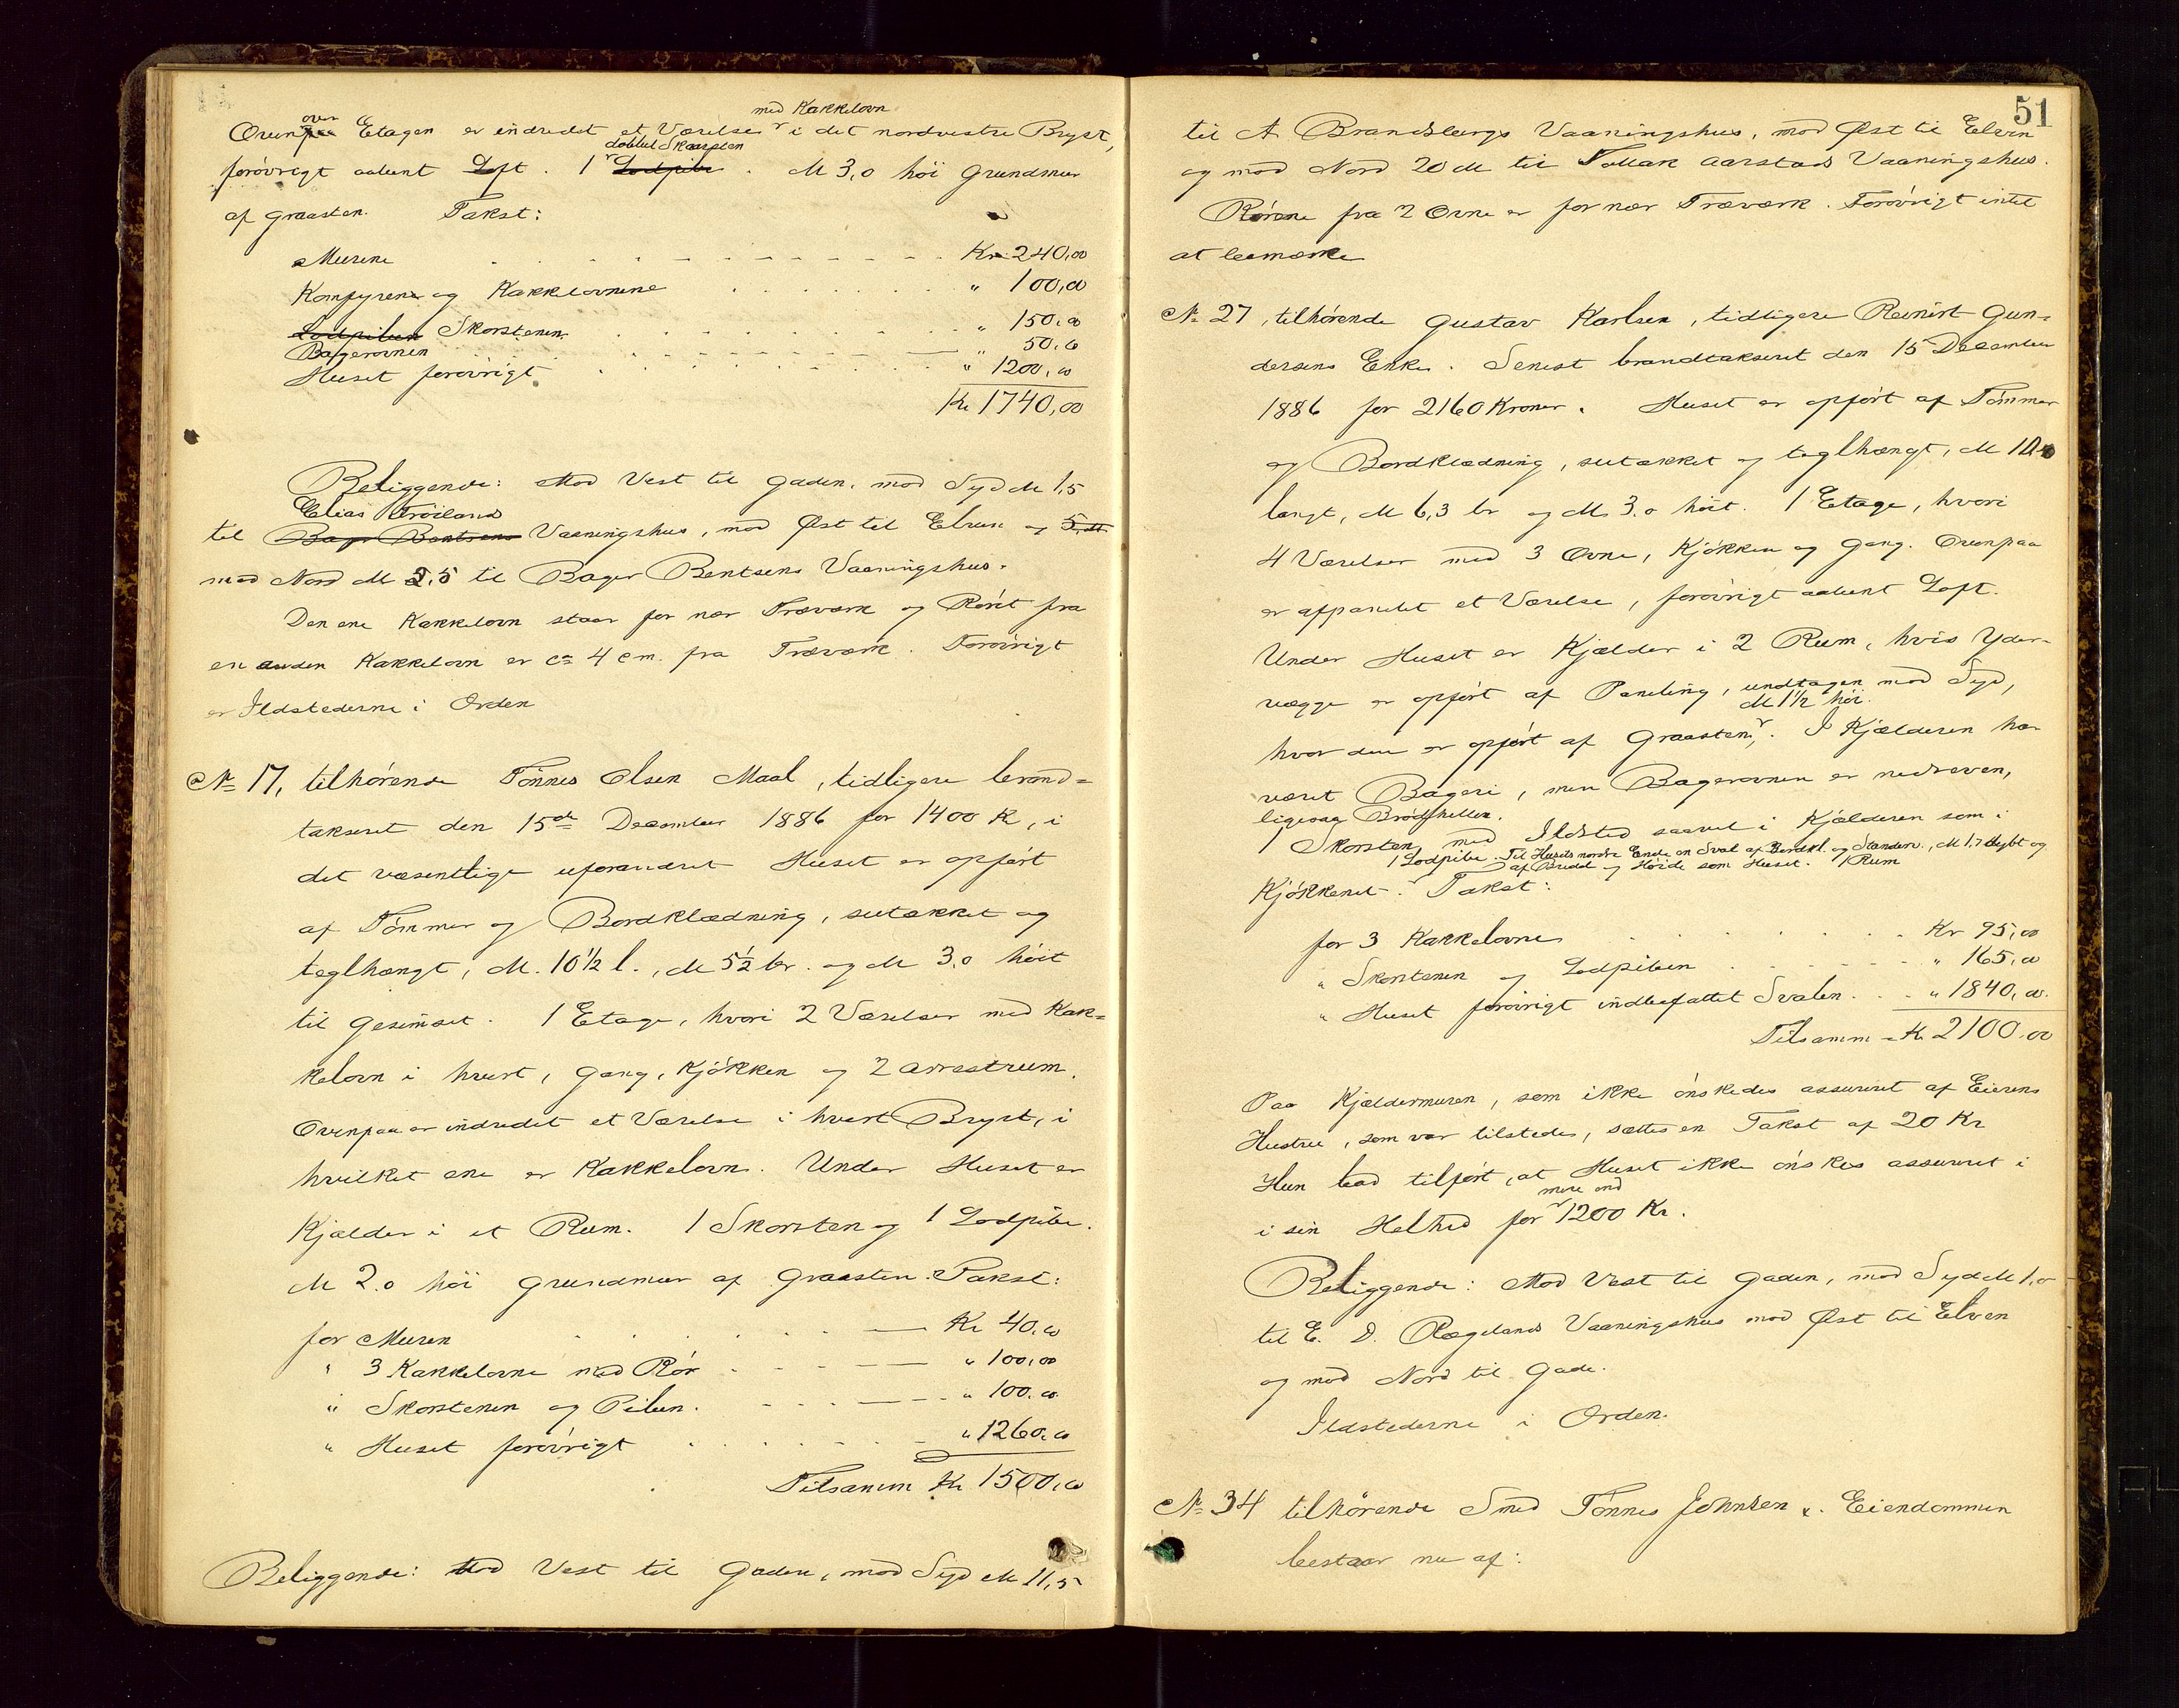 med Kakkelovn
over
Ovenpaa Etagen er indredet et Værelse i det nordvestre Bryst,
dobbel Skaarsten
forøvrigt aabent Loft. 1 Lodpibe. M 3,0 høi Grundmur
af Graasten. Takst:
Murene Kr 240,00
Komfyrene og Kakkelovnene " 100,00
Lodpiben Skorstenen " 150,00
Bagerovnen " 50,00
Huset forøvrigt " 1200,00
Kr 1740,00
Beliggende: Mod Vest til Gaden, mod Syd M 1,5
Elias Trøilands
til Bager Bentsens Vaaningshus, mod Øst til Elven og 5,
mod Nord M 2,5 til Bager Bentsens Vaaningshus.
Den ene Kakkelovn staar for nær Træværk og Røret fra
en anden Kakkelovn er ca 4 cm. fra Træværk. Forøvrigt
er Ildstederne i Orden
No 17, tilhørende Tønnes Olsen Maal, tidligere brand=
takseret den 15de December 1886 for 1400 K, i
det væsentlige uforandret Huset er opført
af Tømmer og Bordklædning, sutækket og
teglhængt, M. 10½ l., M 5½ br. og M 3,0 høit
til Gesimset. 1 Etage, hvori 2 Værelser med Kak=
kelovn i hvert, Gang, Kjøkken og 2 Arrestrum.
Ovenpaa er indredet et Værelse i hvert Bryst, i
hvilket ene er Kakkelovn. Under Huset er
Kjælder i et Rum. 1 Skorsten og 1 Lodpibe.
M 2.0 høi Grundmur af Graasten. Takst:
for Muren Kr 40,00
" 3 Kakkelovne med Rør " 100,00
" Skorstenen og Piben. " 100,00
" Huset forøvrigt " 1260,00
Tilsamm Kr 1500,00
Beliggende: Mod Vest til Gaden, mod Syd M 11,5
51
til A Brandsbergs Vaaningshus, mod Øst til Elven
og mod Nord 20 M til Tollak Aarstads Vaaningshus.
Rørene fra 2 Ovne er for nær Træværk. Forøvrigt intet
at bemærke
No 27, tilhørende Gustav Karlsen, tidligere Reinert Gun=
dersens Enke. Senest brandtakseret den 15 December
1886 for 2160 Kroner. Huset er opført af Tømmer
og Bordklædning, sutækket og teglhængt, M
langt, M 6,3 br og M 3.0 høit. 1 Etage, hvori
4 Værelser med 3 Ovne, Kjøkken og Gang. Ovenpaa
er afpanelet et Værelse, forøvrigt aabent Loft.
Under Huset er Kjælder i 2 Rum, hvis Yder-
vægge er opført af Paneling, undtagen mod Syd,
M 1½ høi.
hvor den er opført af Graasten,. I Kjælderen har
været Bageri, men Bagerovnen er nedreven,
ligesaa Brødhellen.
1 Skorsten, med Ildsted saavel i Kjælderen som i
1 Lodpibe. Til Husets nordre Ende en Sval af Bordkl. og Stænder., M 1.7 dybt og
af Bredde og Høide som Huset. 1 Rum
Kjøkkenet. Takst:
for 3 Kakkelovne Kr 95,00
" Skorstenen og Lodpiben " 165,00
" Huset forøvrigt indbefattet Svalen. " 1840,00.
Tilsamm Kr 2100,00
Paa Kjældermuren, som ikke ønskedes assureret af Eierens
Hustru, som var tilstede, sættes en Takst af 20 Kr
Hun bad tilført, at Huset ikke ønskes assureret i
mere end
i sin Helhed for 1200 Kr.
Beliggende: Mod Vest til Gaden, mod Syd M 1,0
til E. D. Rægelands Vaaningshus mod Øst til Elven
og mod Nord til Gade.
Ildstederne i Orden.
No 34 tilhørende Smed Tønnes Johnsen. Eiendommen
bestaar nu af: